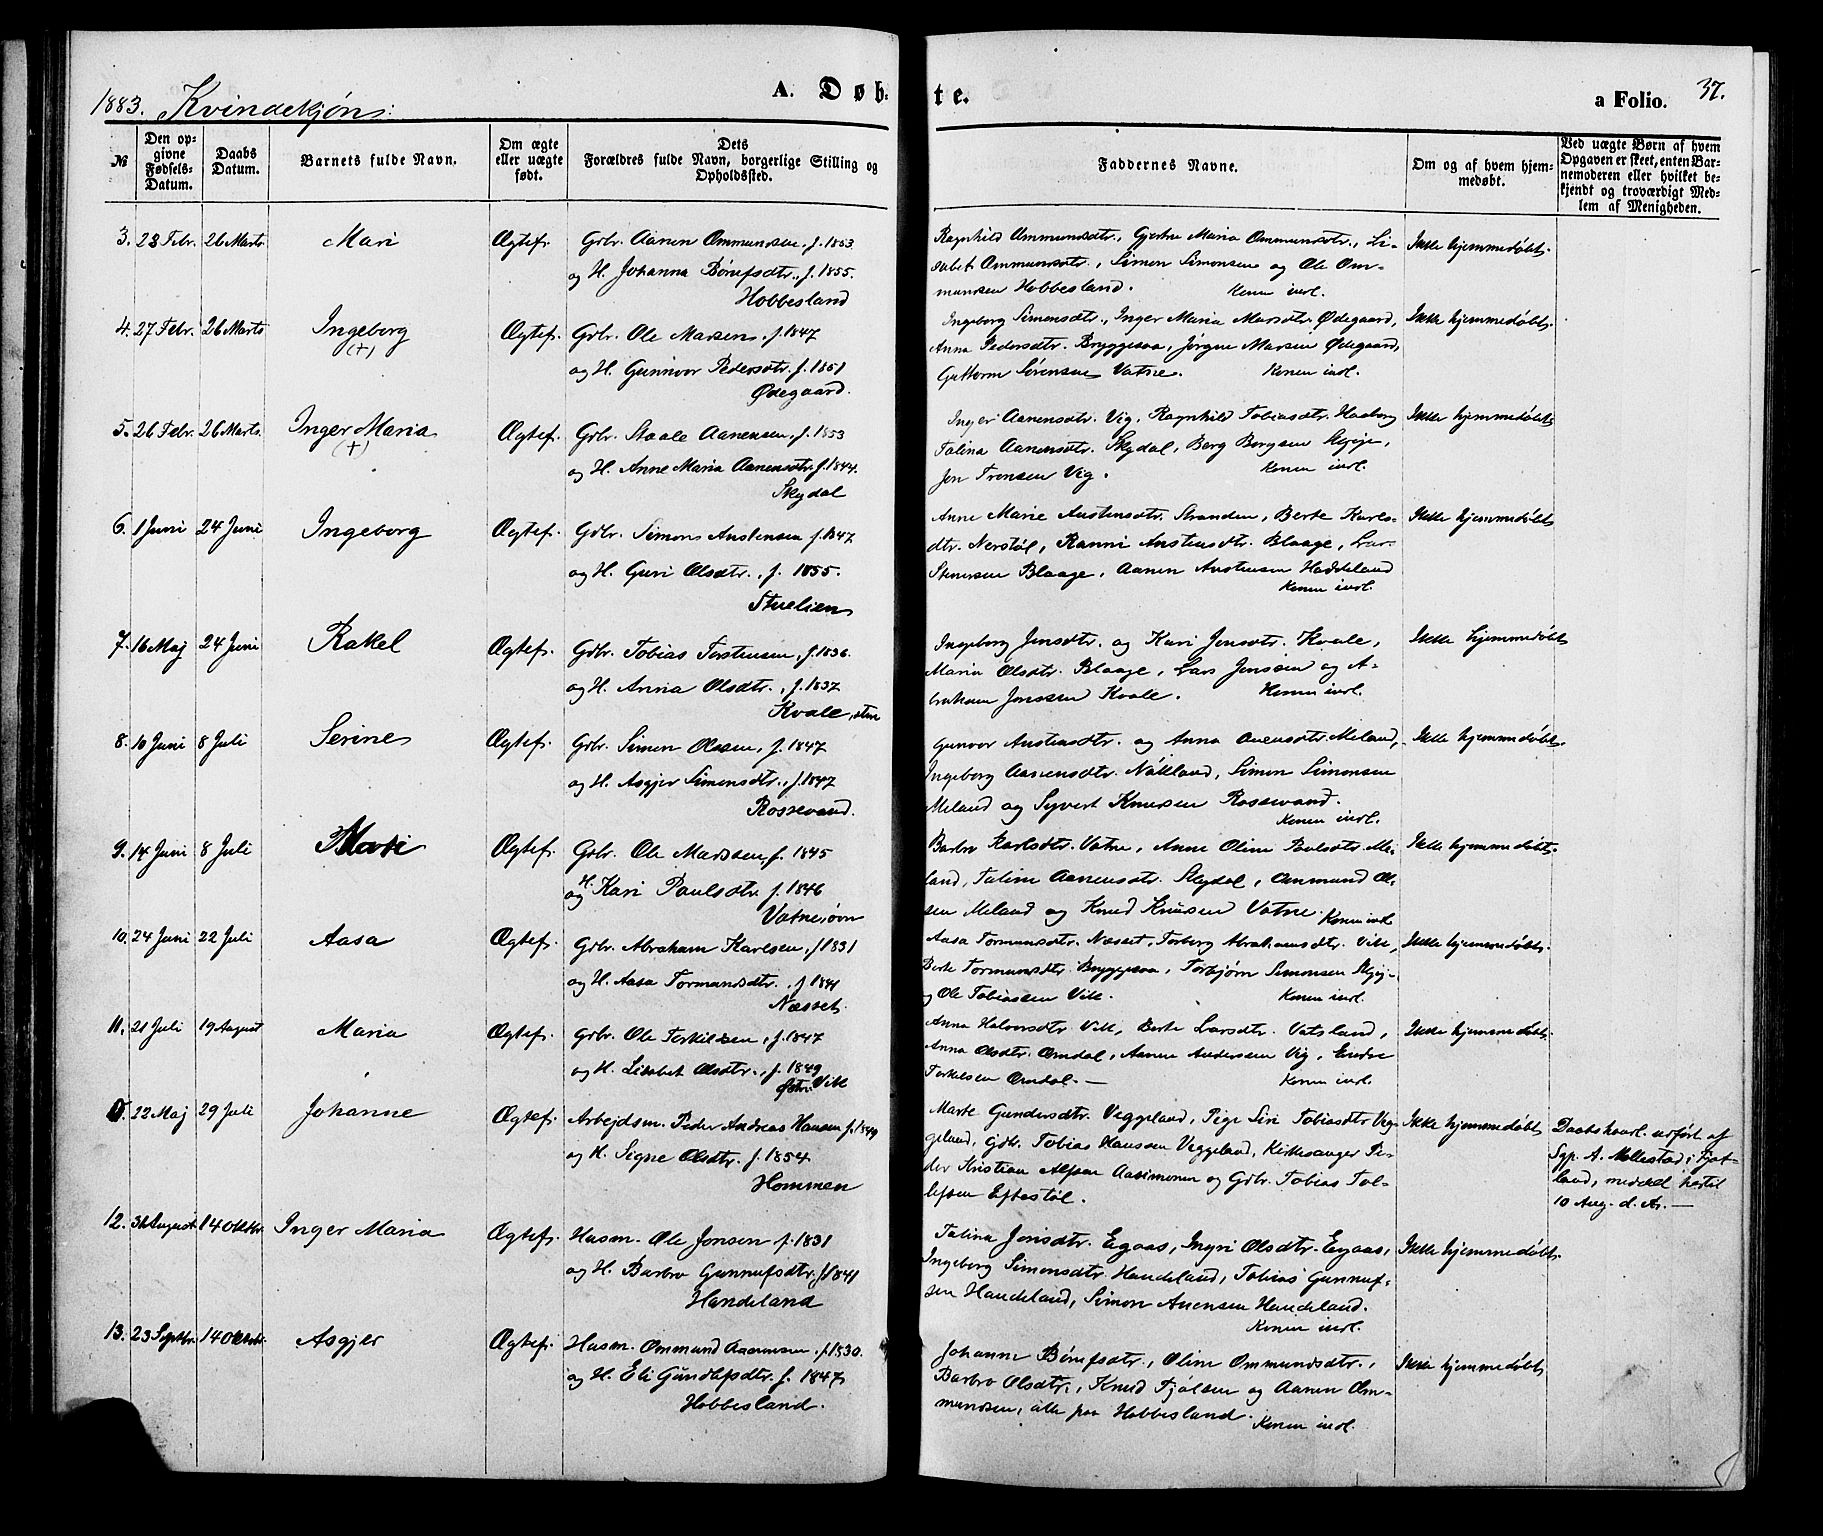 1883. Kvindekjøn:
A. Døbte.
a Folio. 37.
№
Den opgivne Fødsels-Datum.
Daabs Datum.
Barnets fulde Navn.
Om ægte eller uægte født.
Dets Forældres fulde Navn, borgerlige Stilling og Opholdssted.
Faddernes Navne.
Om og af hvem hjemmedøbt.
Ved uægte Børn af hvem Opgaven er skeet, enten Barnemoderen eller hvilket bekjendt og troværdigt Medlem af Menigheden.
3. 23 Febr. 26 Marts Mari Ægtef. Grbr. Aanen Ommundsen, f. 1853.
og H. Johanna Børufsdtr., f. 1855.
Hobbesland
Ragnhild Ommundsdtr., Gjertru Maria Ommundsdtr., Li-
sabet Ommundsdtr., Simon Simonsen og Ole Om-
mundsen Hobbesland. Konen indl.
Ikke hjemmedøbt.
4. 27 Febr. 26 Marts Ingeborg (+) Ægtef. Grbr. Ole Marsen, f. 1847
og H. Gunnvor Pedersdtr. f. 1851
Ødegaard.
Ingeborg Simensdtr., Inger Maria Marsdtr. Ødegaard,
Anna Pedersdtr. Bryggesaa, Jørgen Marsen Ødegaard,
Guttorm Sørensen Vatne. Konen indl.
Ikke hjemmedøbt.
5. 26 Febr. 26 Marts. Inger Maria (+) Ægtef. Grbr. Staale Aanensen, f. 1853
og H. Anne Maria Aanensdtr. f. 1844.
Skydal
Inger Aanensdtr. Vig, Ragnhild Tobiasdtr. Haaberg
Talina Aanensdtr. Skydal, Berg Bergsen
Jon Tronsen Vig. Konen indl.
Ikke hjemmedøbt
6. 1 Juni 24 Juni Ingeborg Ægtef. Gbr. Simon Austensen f. 1847
og H. Guri Olsdtr., f. 1855.
Stuelien
Anne Marie Austensdtr. Stranden, Berte Karls-
dtr. Nerstøl, Ranni Austensdtr. Blaage, Lars
Stenersen Blaage, Aanen Austensen Haddeland
Konen indl.
Ikke hjemmedøbt
7. 16 Maj 24 Juni Rakel Ægtef. Gbr. Tobias Torstensen, f. 1836.
og H. Anna Olsdtr., f. 1837
Kvale,
Ingeborg Jonsdtr. og Kari Jonsdtr. Kvale,
Maria Olsdtr. Blaage, Lars Jonssen og A-
braham Jonssen Kvale. Konen indl.
Ikke hjemmedøbt
8. 10 Juni 8 Juli Serine Ægtef. Grbr. Simon Olssen, f. 1847
og H. Asgjer Simonsdtr., f. 1847
Rossevand.
Gunvor Austensdtr. og Anna Meland,
Ingeborg Aanensdtr. Nøkland, Simon Simonsen
Meland og Syvert Knutsen Rossevand.
Konen indl.
Ikke hjemmedøbt.
9. 14 Juni 8 Juli Mari Ægtef. Grbr. Ole Marssen, f. 1845
og H. Kari Paulsdtr. f. 1846
Vatne,
Barbro Karlsdtr. Vatne, Anne Oline Paulsdtr. Me-
land, Taline Aanensdtr. Skydal, Ommund Ol-
sen Meland og Knud Knutsen Vatne. Konen indl
Ikke hjemmedøbt.
10. 24 Juni 22 Juli Aasa Ægtef. Grbr. Abraham Karlsen, f 1831
og H. Aasa Tormundsdtr., f 1841
Næsset.
Aasa Tormundsdtr. Næsset, Torborg Abrahamsdtr. Vik,
Berte Tormundsdtr. Bryggesaa, Torbjørn Simonsen
og Ole Tobiassen Vik. Konen indl.
Ikke hjemmedøbt.
11. 21 Juli 19 August Maria Ægtef. Grbr. Ole Torkildsen, f. 1847
og H. Lisabet Olsdtr., f. 1849
Østre Vik
Anna Halvorsdtr Vik, Berte Larsdtr. Vatsland,
Anna Olsdtr. Omdal, Aanen Andersen Vig, Endre
Torkelsen Omdal. — Konen indl.
Ikke hjemmedøbt.
0. 22 Maj 29 Juli Johanne Ægtef. Arbejdsm. Peder Andreas Hansen f. 1849
og H. Signe Olsdtr. f. 1854.
Hommen
Marte Gundersdtr. Veggeland, Pige Siri Tobiasdtr Veg-
geland, Gdbr. Tobias Hanssen Veggeland, Kirkesanger Pe-
der Kristian Alfsen Aasimonen og Gdbr. Tobias Tol-
lefsen Eftestøl.
Ikke hjemmedøbt
Daabshandl. udført af
Sgp. A. Mollestad i Fjot-
land, meddelt hertil
10 Aug. d. A. —
12. 31 August 14 Oktbr. Inger Maria Ægtef. Husm. Ole Jonsen f. 1831
og H. Barbro Gunnufsdtr. f 1841
Handeland
Talina Jonsdtr. Egaas, Ingri Olsdtr. Egaas,
Ingeborg Simonsdtr. Handeland, Tobias Gunnuf-
sen Handeland, Simon Anensen Handeland.
Konen indl.
Ikke hjemmedøbt.
13. 23 Septbr. 14 Oktobr. Asgjer Ægtef. Husm. Ommund Aanensen, f 1830.
og H. Eli Gundlefsdtr. f. 1847
Hobbesland.
Johanne Børufsdtr., Oline Ommundsdtr.,
Barbro Olsdtr., Knud Fjølsen og Aanen Om-
mundsen, alle paa Hobbesland. Konen indl.
Ikke hjemmedøbt